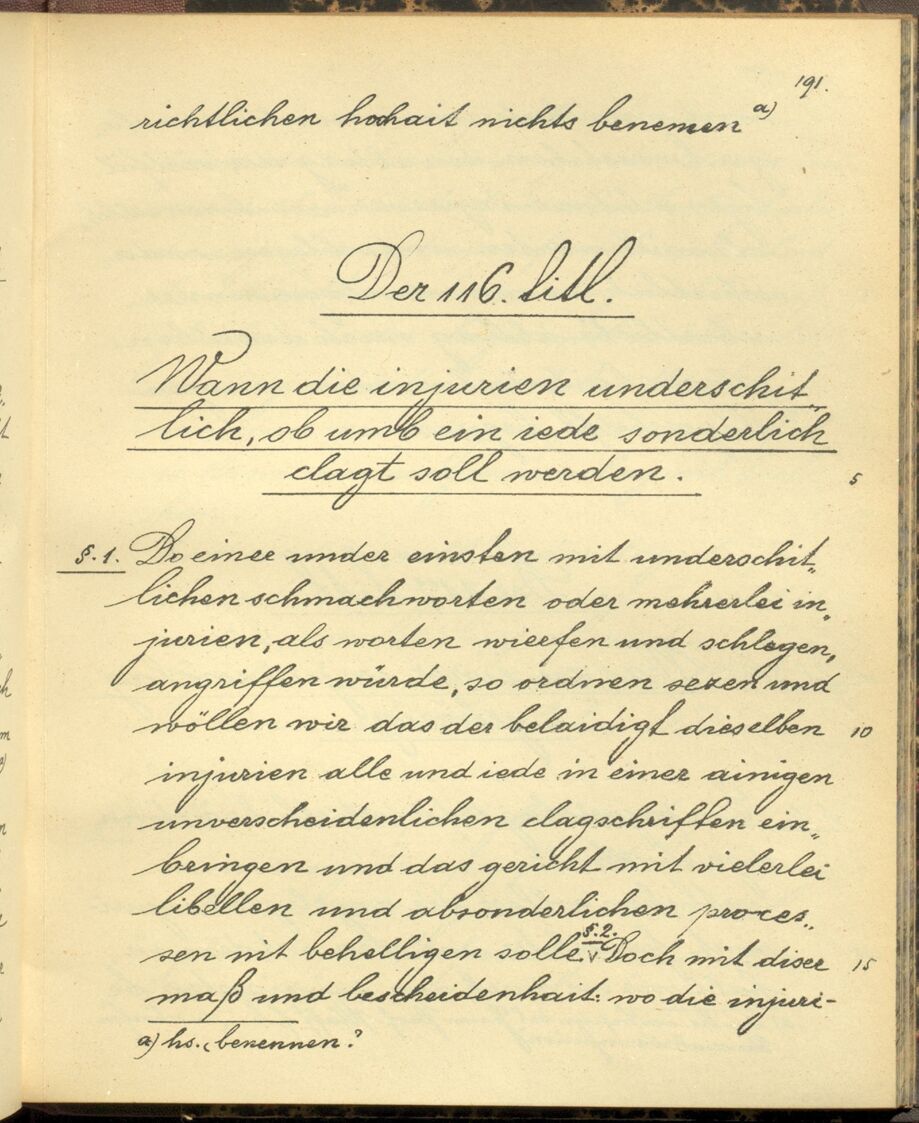 191.
richtlichen hochait nichts benemen a)
Der 116. titl.
Wann die injurien underschit„
lich, ob umb ein iede sonderlich
clagt soll werden.
5
§. 1. Do einer under einsten mit underschit„
lichen schmachworten oder mehrerlei in„
jurien, als worten wierfen und schlegen,
angriffen würde, so ordnen sezen und
wöllen wir das der belaidigt dieselben
10
injurien alle und iede in einer ainigen
unverscheidenlichen clagschriften ein„
bringen und das gericht mit vielerlei
libellen und absonderlichen proces„
§. 2.
sen nit behelligen solle. Doch mit diser
15
maß und bescheidenhait: wo die injuri-
a) hs. „benennen?